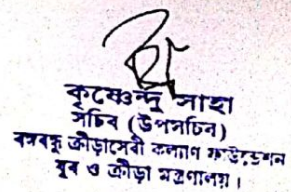 কৃষ্ণেন্দু সাহা
সচিব (উপসচিব)
বঙ্গবন্ধু ক্রীড়াসেবী কল্যাণ ফাউন্ডেশন
যুব ও ক্রীড়া মন্ত্রণালয়।